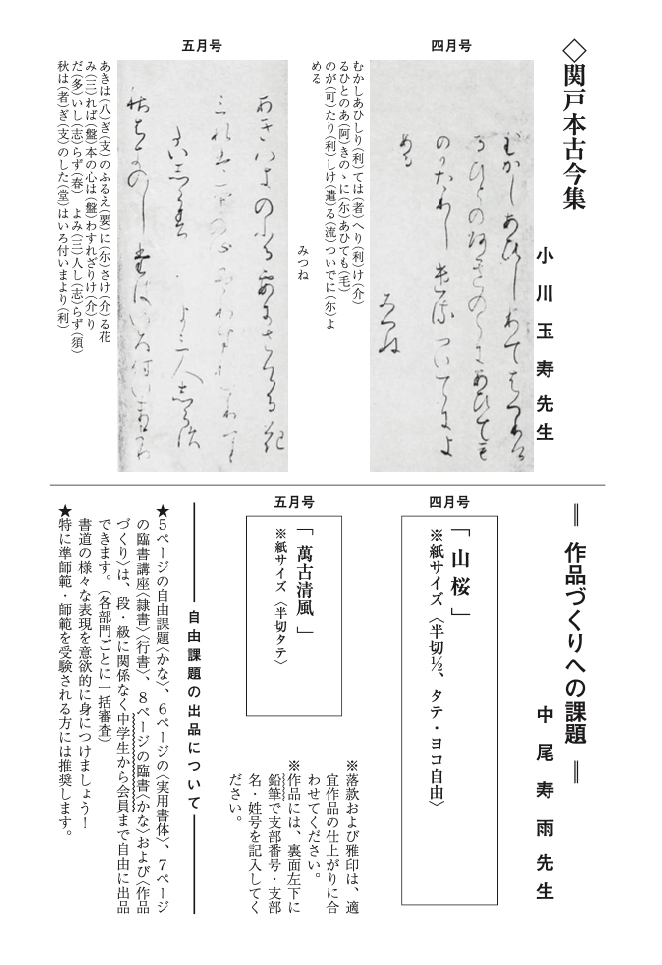 ◇関戸本古今集
小川玉寿先生
四月号
むかしあひしり(利)ては(者)へり(利)け(介)
るひとのあ(阿)きのゝに(尓)あひても(毛)
のが(可)たり(利)しけ(遣)る(流)ついでに(尓)よ
める
みつね
五月号
あきは(八)ぎ(支)のふるえ(要)に(尓)さけ(介)る花
み(三)れば(盤)本の心は(盤)わすれざりけ(介)り
だ(多)いし(志)らず(春)　よみ(三)人し(志)らず(須)
秋は(者)ぎ(支)のした(堂)はいろ付いまより(利)
＝ 作品づくりへの課題 ＝
中尾寿雨先生
四月号
「山桜」
※紙サイズ〈半切½、タテ・ヨコ自由〉
五月号
「萬古清風」
※紙サイズ〈半切タテ〉
※落款および雅印は、適
宜作品の仕上がりに合
わせてください。
※作品には、裏面左下に
鉛筆で支部番号・支部
名・姓号を記入してく
ださい。
自由課題の出品について
★5ページの自由課題〈かな〉、6ページの〈実用書体〉、7ページ
の臨書講座〈隷書〉〈行書〉、8ページの臨書〈かな〉および〈作品
づくり〉は、段・級に関係なく中学生から会員まで自由に出品
できます。（各部門ごとに一括審査）
書道の様々な表現を意欲的に身につけましょう！
★特に準師範・師範を受験される方には推奨します。